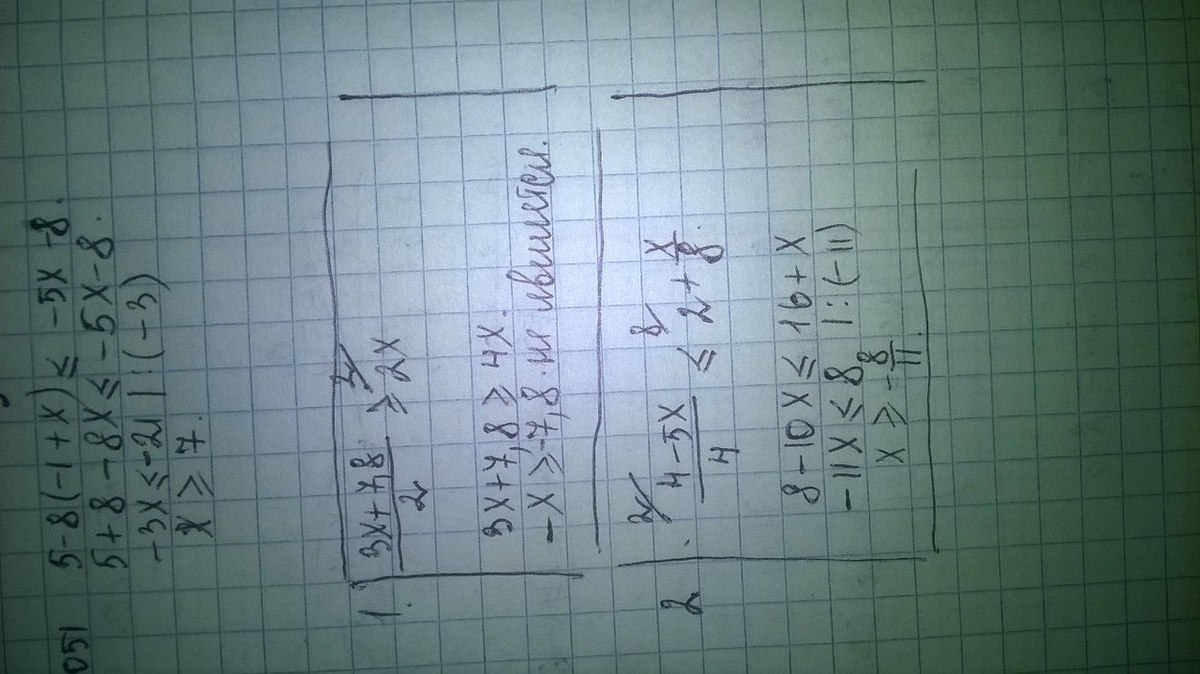 051 5-8(-1+x) ≤ -5x-8.
5+8-8x ≤ -5x-8.
-3x ≤ -21 | :(-3)
x ≥ 7.
1. (3x+7,8)/2 ≥ 2x
3x+7,8 ≥ 4x.
-x ≥ -7,8. не является.
2. (4-5x)/4 ≤ 2 + x/8.
8-10x ≤ 16+x
-11x ≤ 8 | :(-11)
x ≥ -8/11.